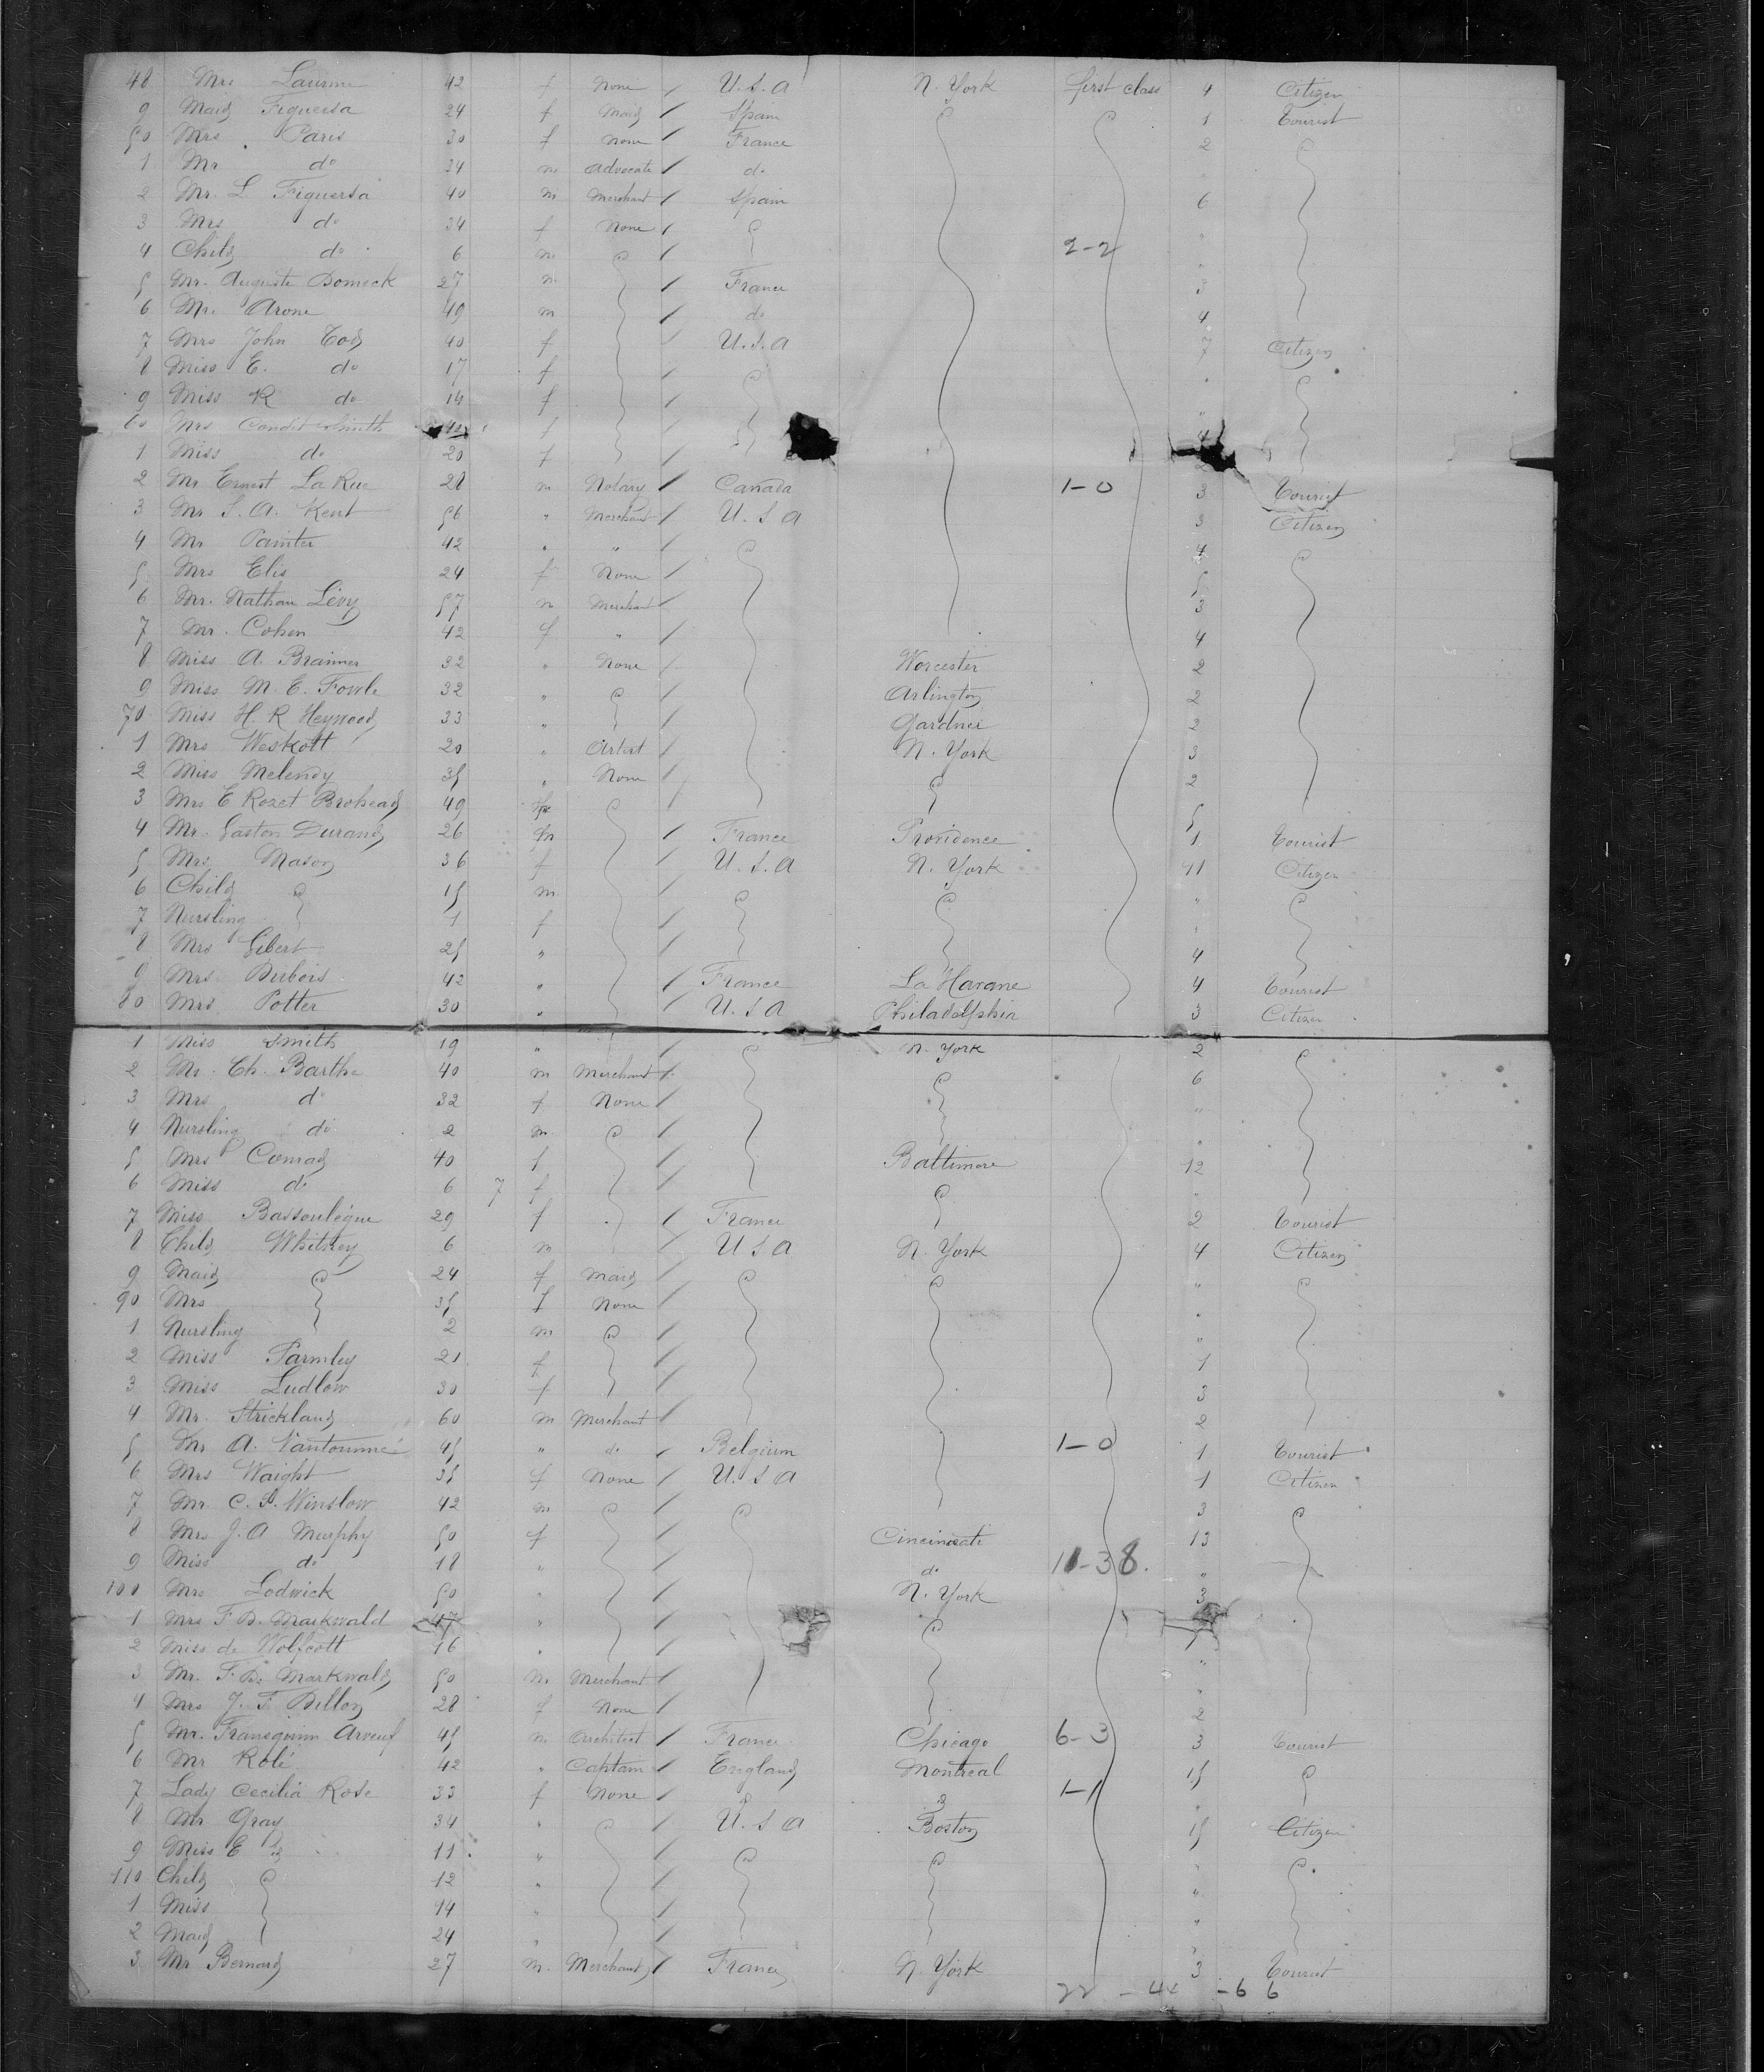 48 Mrs Laurine 42 f None / U.S.A N. York first class 4 Citizen
9 Maid Figuersa 24 f Maid / Spain 1 Tourist
50 Mrs Paris 30 f None / France 2
1 Mr do 34 m Advocate / do
2 Mr. L Figuersa 40 m Merchant / Spain 6
3 Mrs do 34 f None / "
4 Child do 6 m / 2-2 "
5 Mr. Auguste Domeck 27 m / France 3
6 Mr. Arone 49 m / do 4
7 Mrs John Tod 40 f / U.S.A 7 Citizen
8 Miss E. do 17 f / "
9 Miss R do 14 f / "
60 Mrs Condit Smith 40 f / 4
1 Miss do 20 f /
2 Mr Ernest La Rue 28 m Notary / Canada 1-0 3 Tourist
3 Mr S. A. Kent 56 " Merchant / U.S.A 3 Citizen
4 Mr Painter 42 " " / 4
5 Mrs Elis 24 f None / 5
6 Mr. Nathan Lévy 57 m Merchant 3
7 Mr. Cohen 42 f " / 4
8 Miss A. Brainner 32 " None / Worcester 2
9 Miss M. E. Fowle 32 " / Arlington 2
70 Miss H. R Heywood 33 " / Gardner 2
1 Mrs Weskott 20 " Artist / N. York 3
2 Miss Melendy 35 " None / 2
3 Mrs E Rozet Brohead 49 / 5
4 Mr. Gaston Durand 26 m / France Providence 1 Tourist
5 Mrs Mason 36 f / U.S.A N. York 11 Citizen
6 Child 15 m / "
7 Nursling 1 f / "
8 Mrs Gibert 25 " / 4
9 Mrs. Dubois 42 " / France La Havane 4 Tourist
80 Mrs Potter 30 " / U.S.A Philadelphia 3 Citizen
1 Miss Smith 19 " / N. York 2
2 Mr. Ch. Barthe 40 m Merchant / 6
3 Mrs do 32 f None / "
4 Nursling do 2 m / "
5 Mrs Conrad 40 f / Baltimore 12
6 Miss do 6 7 f / "
7 Miss Bassoulégue 29 f / France 2 Tourist
8 Child Whitney 6 m / U.S.A N. York 4 Citizen
9 Maid 24 f Maid / "
90 Mrs 35 f None / "
1 Nursling 2 m / "
2 Miss Parmley 21 f / 1
3 Miss Ludlow 30 f / 3
4 Mr. Strickland 60 m Merchant / 2
5 Mr A. Vantoumé 45 " do / Belgium 1-0 1 Tourist
6 Mrs Waight 35 f None / U.S.A 1 Citizen
7 Mr. C. S. Winslow 42 m / 3
8 Mrs J. A Murphy 50 f / Cincinnati 13
9 Miss do 18 " / do 11-38. "
100 Mrs Lodwick 50 " / N. York 3
1 Mrs F. B. Markwald 47 " /
2 Miss de Wolfcott 16 " / 1
3 Mr. F. B. Markwald 50 m. Merchant / "
4 Mrs J. F Dillon 28 f None / 2
5 Mr. Fransquinn Arveuf 45 m Architect / France Chicago 6-3 3 Tourist
6 Mr Rolé 42 " Captain / England Montreal 15
7 Lady Cecilia Rose 33 f None / 1-1 "
8 Mr Gray 34 " / U.S.A Boston 15 Citizen
9 Miss E 11 " / "
110 Child 12 " / "
1 Miss 14 " / "
2 Maid 24 " / "
3 Mr Bernard 27 m. Merchant / France N. York 3 Tourist
22 - 44 - 66